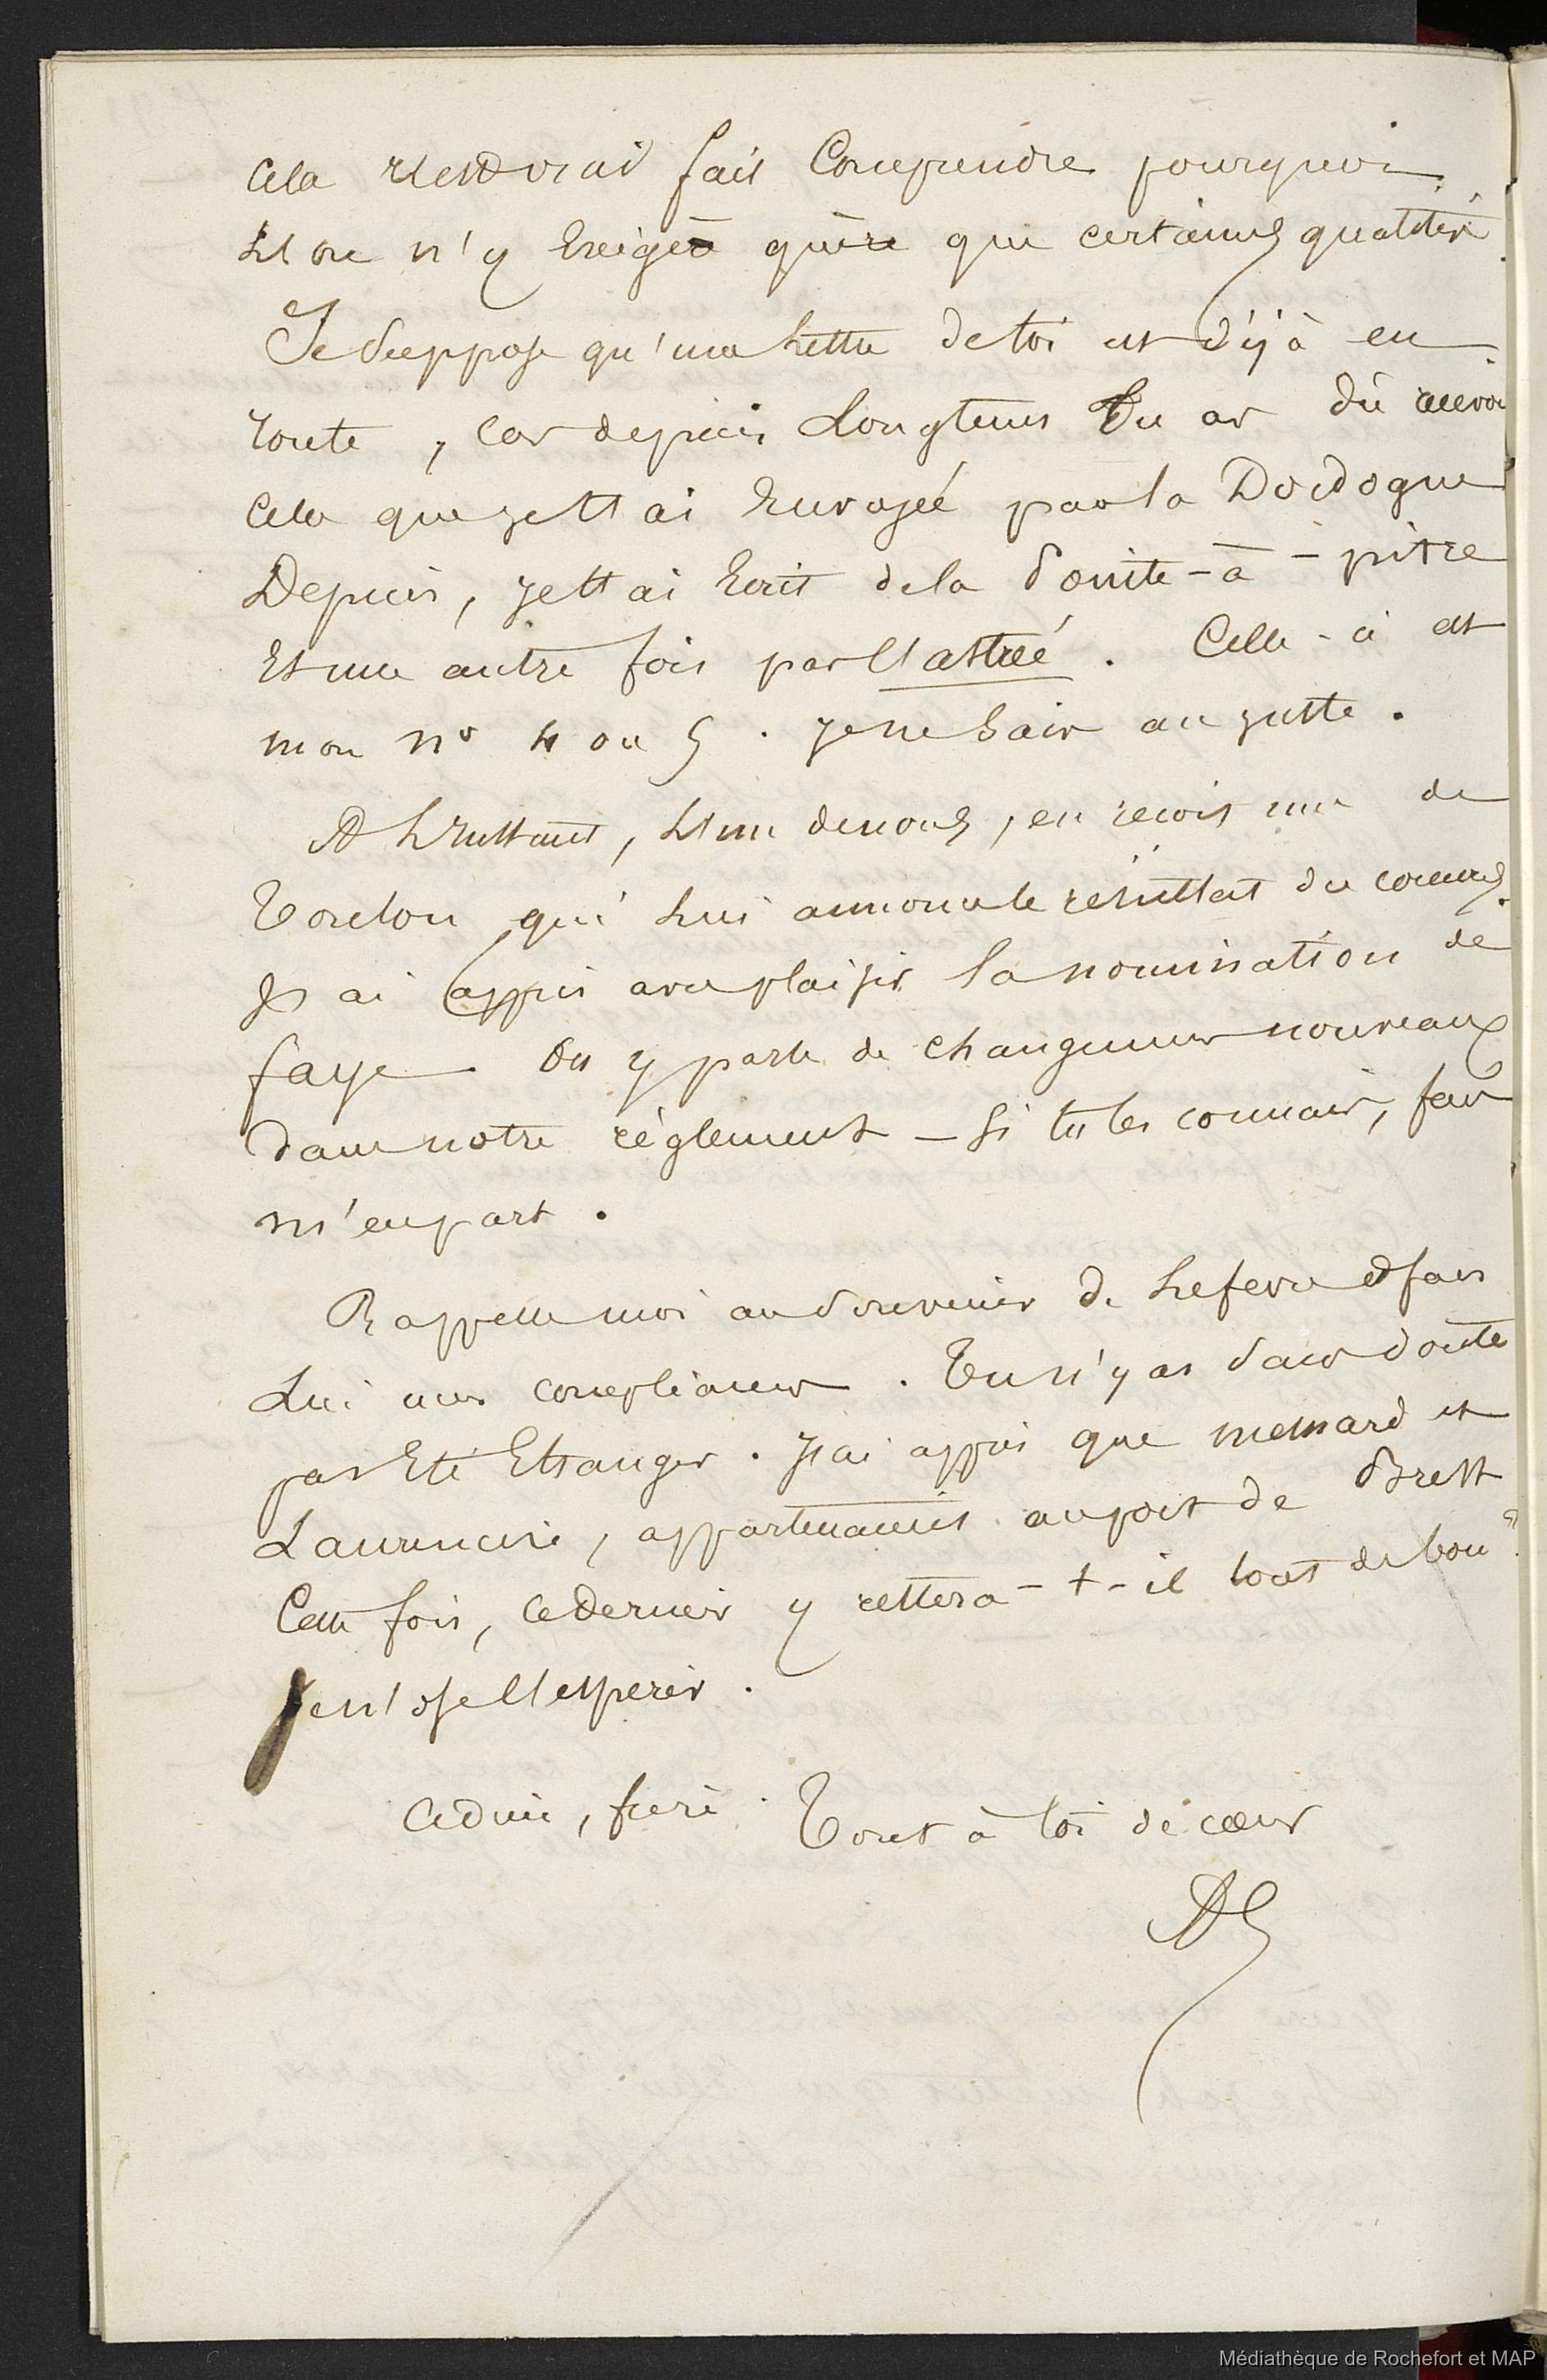 Cela rendrait fait Comprendre pourquoi
L'on n'y Exige guère que certaines qualités.
Je Suppose qu'une Lettre de toi est déjà en
route, Car depuis Longtems Tu as dû recevoir
Celle que je t'ai Envoyée par la Dordogne
Depuis, je t'ai Ecrit de la Pointe-à-pitre
Et une autre fois par l'astrée. Celle-ci est
mon n° 4 ou 5. je ne Sais au juste.
A L'Instant, L'un de nous, en reçoit une de
Toulon qui Lui annonce le résultat du concours.
J'ai appris avec plaisir la nomination de
faye. On y parle de changemens nouveaux
dans notre règlement - Si tu les connais, fais
m'en part.
Rappelle moi au Souvenir de Lefevre et fais
Lui mes complimens. Tu n'y as Sans doute
pas Eté Etranger. J'ai appris que mesnard et
Laurencin, appartenaient au port de Brest
Cette fois, Ce dernier y restera-t-il tout de bon?
Je n'ose l'espérer.
Adieu, frère. Tout à toi de cœur
Médiathèque de Rochefort et MAP